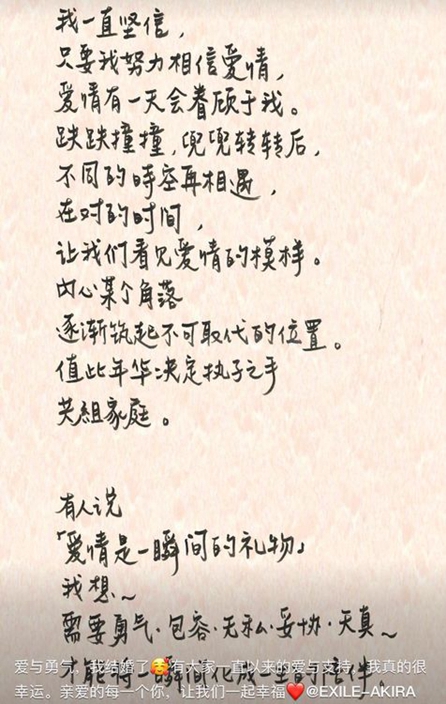 我一直坚信，
只要我努力相信爱情，
爱情有一天会眷顾于我。
跌跌撞撞，兜兜转转后，
不同的時空再相遇，
在对的时间，
让我们看见爱情的模样。
内心某个角落
逐渐筑起不可取代的位置。
值此年华决定执子之手
共組家庭。
有人说
「爱情是一瞬间的礼物」
我想~
需要勇气·包容·无私·妥协·天真~
才能将一瞬间化成一生的陪伴。
爱与勇气，我结婚了🥰有大家一直以来的爱与支持，我真的很
幸运。亲爱的每一个你，让我们一起幸福❤️@EXILE-AKIRA